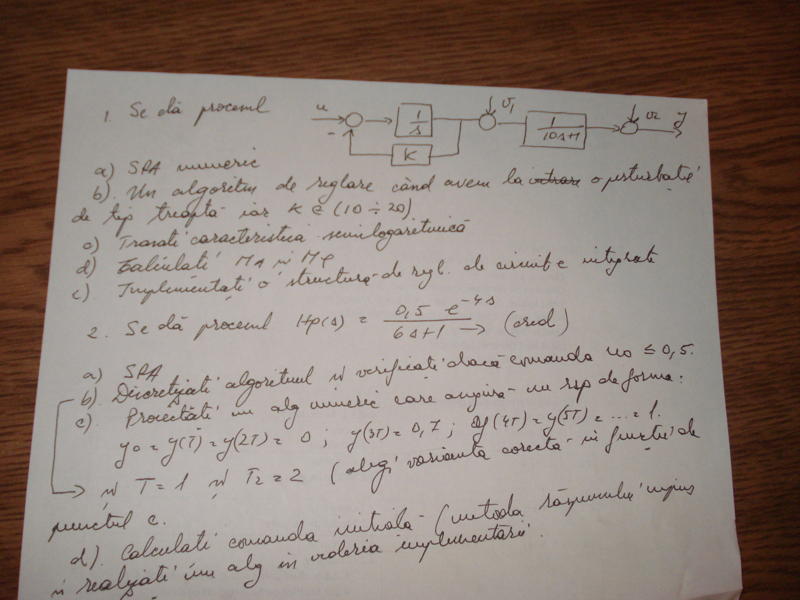 1. Se dă procesul u - 1/s K v1 1/10s+1 v2 y
a) SPA numeric
b). Un algoritm de reglare când avem la intrare o perturbație
de tip treaptă iar K ∈ (10 ÷ 20)
c) Trasați caracteristica semilogaritmică
d) Calculați MA și Mφ
e) Implementați o structură de regl. de circuite integrate
2. Se dă procesul Hp(s) = 0,5 e^-4s / 6s+1 → (ord)
a) SPA
b) Discretizați algoritmul și verificați dacă comanda u0 ≤ 0,5.
c) Proiectați un alg numeric care asigură un rsp de forma:
y0 = y(T) = y(2T) = 0 ; y(3T) = 0,7 ; y(4T) = y(5T) = ... = 1.
și T = 1 și T2 = 2 (alegi varianta corectă în funcție de
punctul c.
d). Calculați comanda inițială (metoda răspunsului impus
și realizați un alg în vederea implementării.